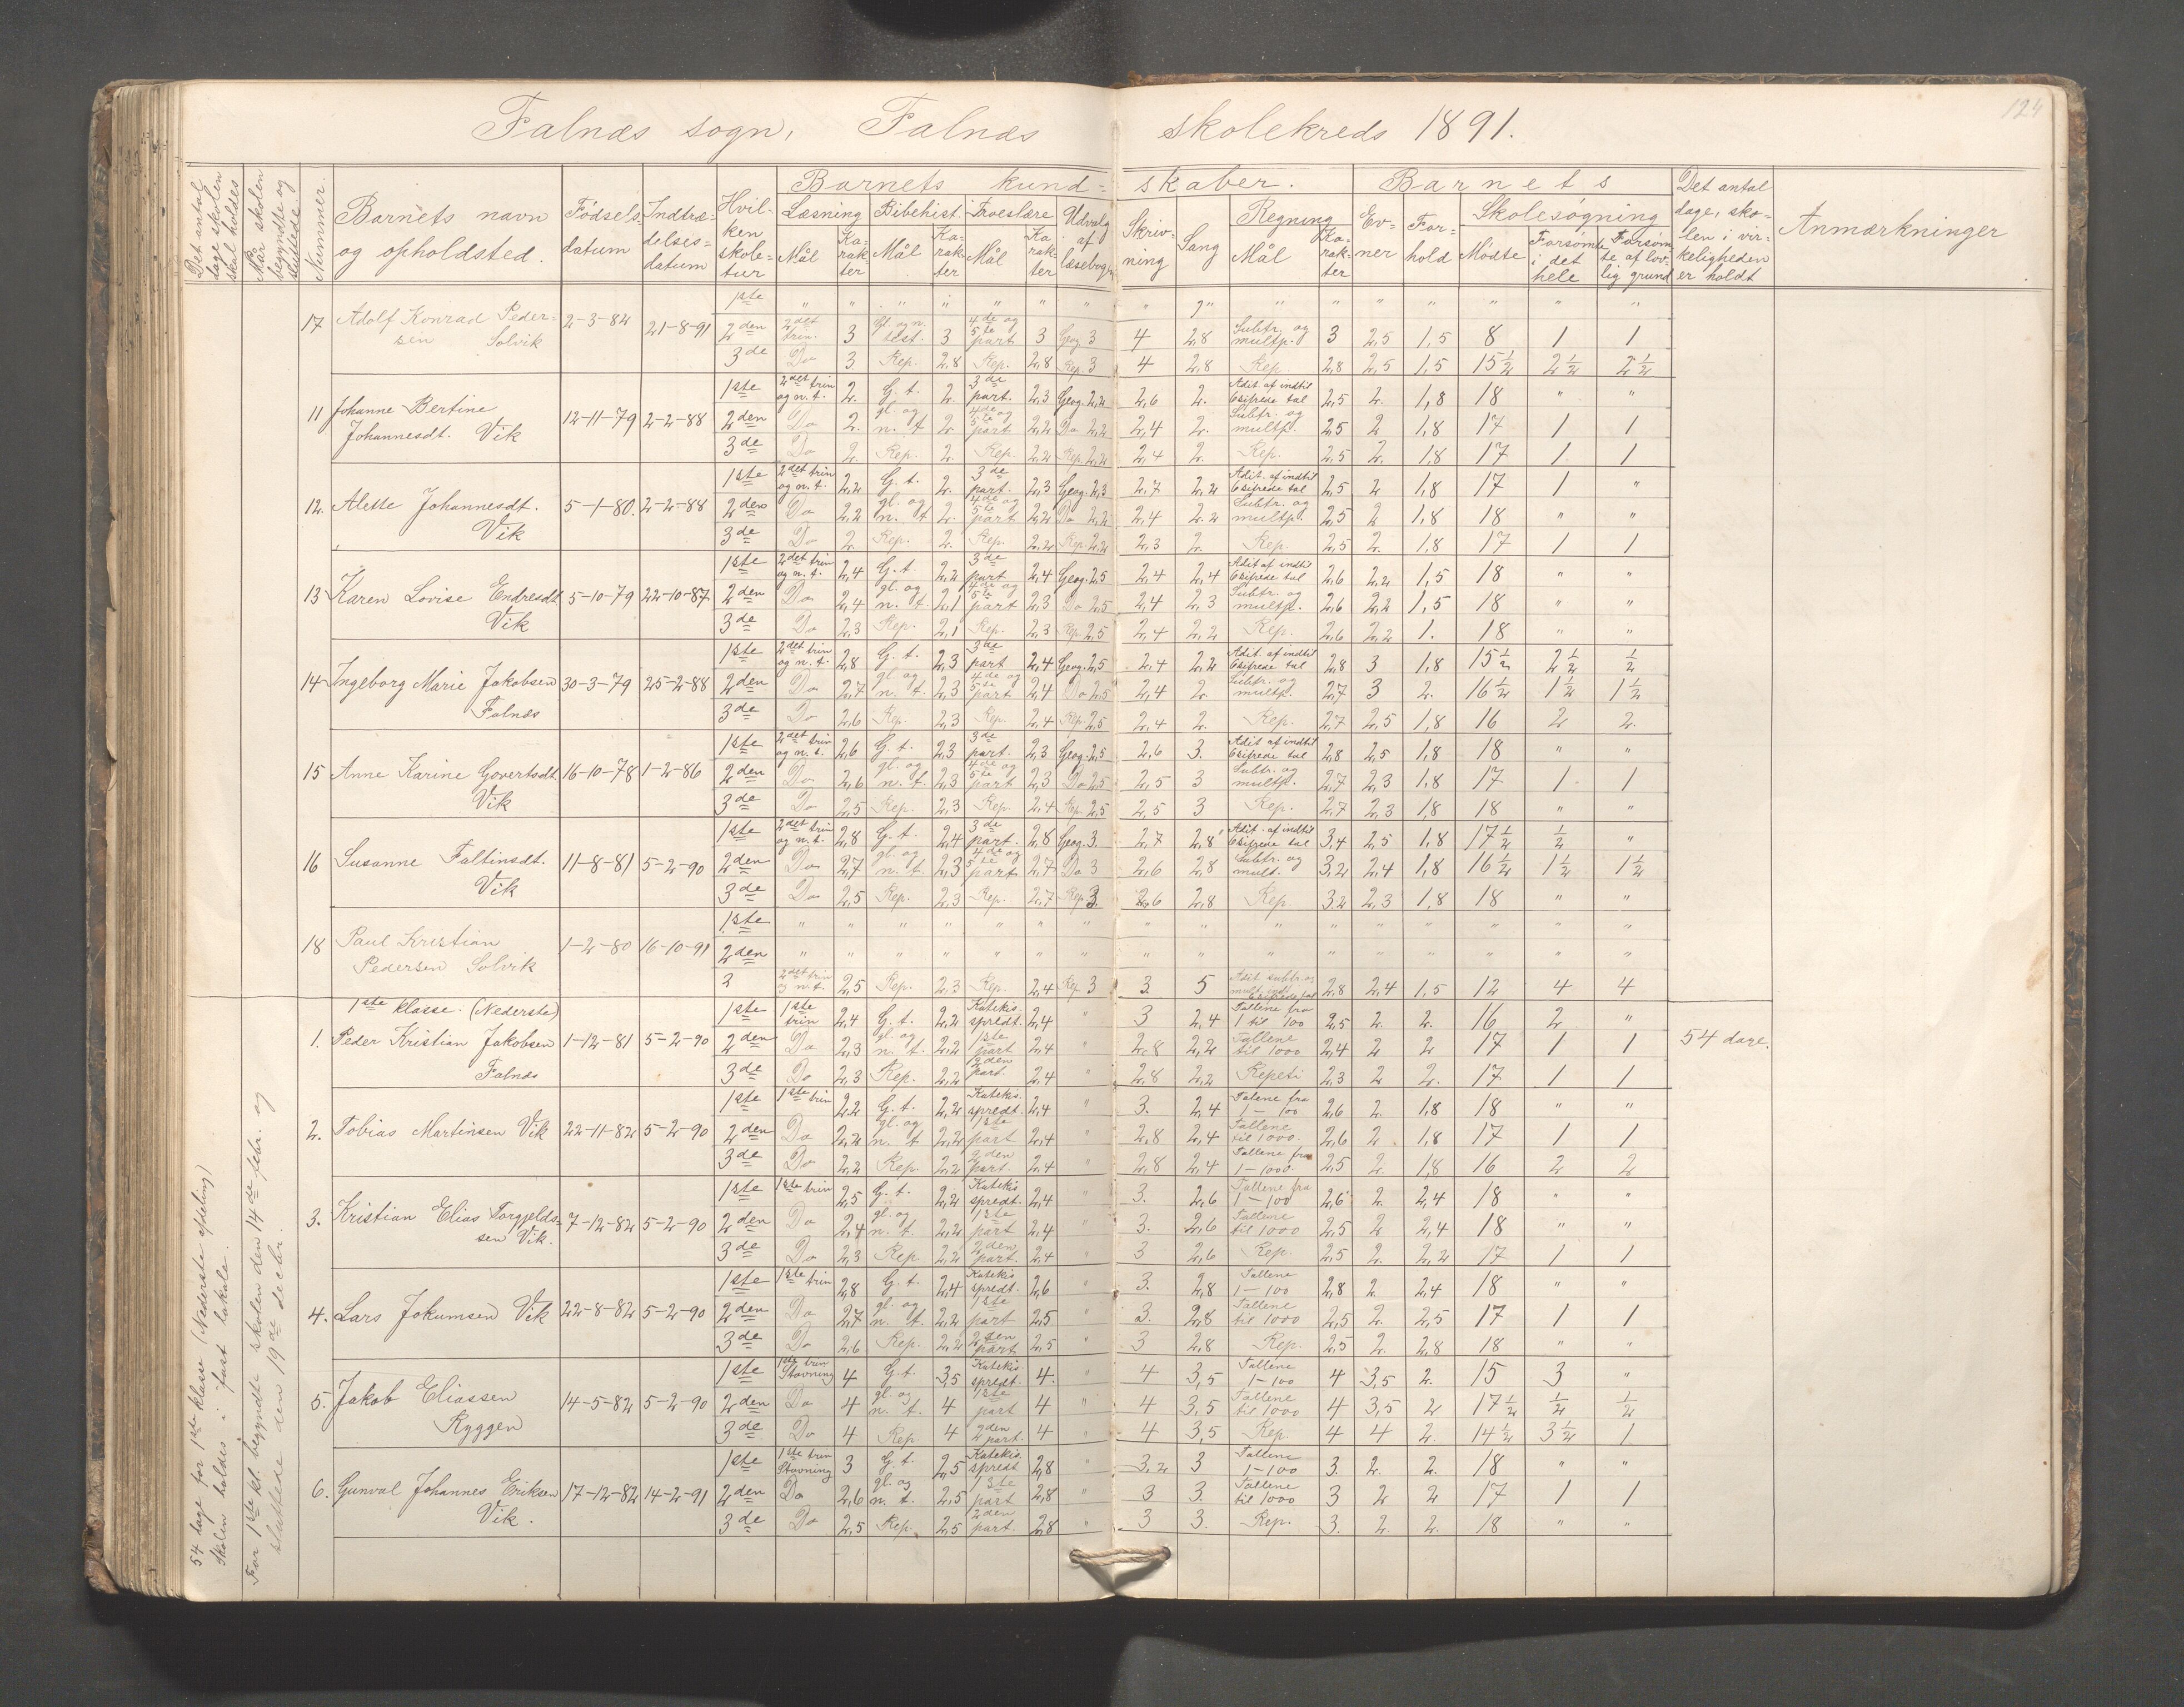 124
Falnæs sogn, Falnæs skolekreds 1891.
Det antal dage skolen skal holdes
Når skolen begyndte og sluttede.
Nummer.
Barnets navn og opholdsted.
Fødsels-datum
Indtræ-delses-datum
Hvil-ken skole-tur
Barnets kund-skaber.
Læsning Mål Ka-rak-ter
Bibelhist. Mål Ka-rak-ter
Troeslære Mål Ka-rak-ter
Udvalg af læsebogn
Skriv-ning
Sang
Regning Mål Ka-rak-ter
Barnets
Ev-ner
For-hold
Skolesøgning
Mødte
Forsømte i det hele
Forsøm-te af lov-lig grund
Det antal dage, sko-len i vir-keligheden er holdt
Anmærkninger
17 Adolf Konrad Peder-sen Solvik 2-3-82 21-8-91
1ste " " " " " " " " " " " " " " "
2den 2det trin. 3 Gl. og n. test. 3 4de og 5te part 3 Geog 3 4 2,8 Subtr. og multp. 3 2,5 1,5 8 1 1
3de Do 3. Rep. 2,8 Rep. 2,8 Rep. 3 4 2,8 Rep. 2,8 2,5 1,5 15½ 2½ 2½
11 Johanne Bertine Johannesdt. Vik 12-11-79 2-2-88
1ste 2det trin og n. t. 2. G. t. 2. 3de part. 2,3 Geog. 2,2 2,6 2. Adit. af indtil 6sifrede tal 2,5 2. 1,8 18 " "
2den Do 2. gl. og n. t 2. 4de og 5te part 2,2 Do 2,2 2,4 2. Subtr. og multp. 2,5 2 1,8 17 1 1
3de Do 2. Rep. 2. Rep. 2,2 Rep. 2,2 2,4 2. Rep. 2,5 2. 1,8 17 1 1
12. Alette Johannesdt. Vik 5-1-80. 2-2-88
1ste 2det trin og n. t. 2,2 G. t. 2. 3de part. 2,3 Geog. 2,3 2,7 2,2 Adit. af indtil 6sifrede tal 2,5 2 1,8 17 1 "
2den Do 2,2 gl. og n. t 2. 4de og 5te part 2,2 Do 2,2 2,4 2.2 Subtr. og multp. 2,5 2 1,8 18 " "
3de Do 2. Rep. 2. Rep. 2,2 Rep. 2,2 2,3 2. Rep. 2,5 2. 1,8 17 1 1
13 Karen Lovise Endresdt Vik 5-10-79 22-10-87
1ste 2det trin og n. t. 2,4 G. t. 2,2 3de part 2,4 Geog. 2,5 2,4 2,4 Adit af indtil 6sifrede tal 2,6 2,2 1,5 18 " "
2den Do 2,4 gl. og n. t. 2,1 4de og 5te part 2,3 Do 2,5 2,4 2,3 Subtr. og multp. 2,6 2,2 1,5 18 " "
3de Do 2,3 Rep. 2,1 Rep. 2,3 Rep. 2,5 2,4 2,2 Rep. 2,6 2,2 1. 18 " "
14 Ingeborg Marie Jakobsen Falnæs 30-3-79 25-2-88
1ste 2det trin og n. t. 2,8 G. t. 2,3 3de part 2,4 Geog. 2,5 2,4 2,2 Adit. af indtil 6sifrede tal 2,8 3 1,8 15½ 2½ ½
2den Do 2,7 gl og n. t. 2,3 4de og 5te part 2,4 Do 2,5 2,4 2. Subtr. og multp. 2,7 3 2. 16½ 1½ 1½
3de Do 2,6 Rep. 2,3 Rep. 2,4 Rep. 2,5 2,4 2. Rep. 2,7 2,5 1,8 16 2 2.
15 Anne Karine Govertsdt Vik 16-10-78 1-2-86
1ste 2det trin og n. t. 2,6 G. t. 2,3 3de part. 2,3 Geog. 2,5 2,6 3. Adit af indtil 6sifrede tal 2,8 2,5 1,8 18 " "
2den Do 2,6 gl. og n. t. 2,3 4de og 5te part 2,3 Do 2,5 2,5 3 Subtr. og multp. 2,7 2,3 1,8 17 1 1
3de Do 2,5 Rep. 2,3 Rep. 2,4 Rep. 2,5 2,5 3 Rep. 2,7 2,3 1,8 18 " "
16 Susanne Faltinsdt. Vik 11-8-81 5-2-90
1ste 2det trin og n. t. 2,8 G. t. 2,4 3de part. 2,8 Geog. 3. 2,7 2,8 Adit. af indtil 6sifrede tal 3,4 2,5 1,8 17½ ½ "
2den Do 2,7 gl. og n. t 2,3 4de og 5te part 2,7 Do 3 2,6 2,8 Subtr. og mult. 3,2 2,4 1,8 16½ 1½ 1½
3de Do 2,5 Rep. 2,3 Rep. 2,7 Rep 3. 2,6 2,8 Rep. 3,2 2,3 1,8 18 " "
18 Paul Kristian Pedersen Solvik 1-2-80 16-10-91
1ste " " " " " " " " " " " " " " "
2den " " " " " " " " " " " " " " "
3 2det trin og n. t. 2,5 Rep. 2,3 Rep. 2,4 Rep 3 3. 5 Adit. subtr. og mult. indt. 6sifrede tal 2,8 2,4 1,5 12 4 4
1ste klasse. (Nederste)
54 dage.
1. Peder Kristian Jakobsen Falnæs 1-12-81 5-2-90
1ste 1ste trin 2,4 G. t. 2,2 Katekis. spredt. 2,4 " 3 2,4 Tallene fra 1 til 100 2,5 2. 2. 16 2 "
2den Do 2,3 gl. og n. t. 2,2 1ste part 2,4 " 2,8 2,2 Tallene til 1000 2,4 2 2 17 1 1
3de Do 2,3 Rep. 2,2 2den part. 2,4 " 2,8 2,2 Repeti 2,3 2 2. 17 1 1
2. Tobias Martinsen Vik 22-11-82 5-2-90
1ste 1ste trin 2,2 G. t. 2,2 Katekis. spredt. 2,4 " 3. 2,4 Talene fra 1-100 2,6 2. 1,8 18 " "
2den Do 2,2 gl. og n. t 2,2 1ste part 2,4 " 2,8 2,4 Tallene til 1000. 2,6 2 1,8 17 1 1
3de Do 2,2 Rep. 2,2 2den part. 2,4 " 2,8 2,4 Tallene fra 1-1000. 2,5 2. 1,8 16 2 2
3. Kristian Elias Torgjelds-sen Vik. 7-12-82 5-2-90
1ste 1ste trin 2,5 G. t. 2,2 Katekis spredt. 2,4 " 3. 2,6 Tallene fra 1-100 2,6 2. 2,4 18 " "
2den Do 2,4 gl. og n. t. 2,2 1ste part 2,4 " 3. 2,6 Tallene til 1000 2,5 2 2,4 18 " "
3de Do 2,3 Rep 2,2 2den part. 2,4 " 3 2,6 Rep. 2,5 2. 2,2 17 1 1
4. Lars Jokumsen Vik 22-8-82 5-2-90
1ste 1ste trin 2,8 G. t. 2,4 Katekis spredt. 2,6 " 3. 2,8 Tallene 1-100 2,8 2. 2,4 18 " "
2den Do 2,7 gl. og n. t. 2,2 1ste part 2,5 " 3. 2,8 Tallene til 1000 2,5 2. 2,5 17 1 1
3de Do 2,6 Rep. 2,2 2den part. 2,5 " 3 2,8 Rep. 2,5 2. 2,8 18 " "
5. Jakob Eliassen Ryggen 14-5-82 5-2-90
1ste 1ste trin Stavning 4 G. t 3,5 Katekis. spredt. 4. " 4 3,5 Tallene 1-100 4 3,5 2. 15 3 "
2den Do 4 gl. og n. t. 4 1ste part 4 " 4 3,5 Tallene til 1000 4 3,5 2 17½ ½ ½
3de Do 4 Rep 4 2den part. 4 " 4 3,5 Rep. 4 4 2. 14½ 3½ 1
6. Gunval Johannes Eriksen Vik. 17-12-82 14-2-91
1ste 1ste trin Stavning 3 G. t. 2,5 Katekis. spredt 2,8 " 3,2 3 Tallene 1-100 3. 2. 2. 18 " "
2den Do 2,6 gl. og n. t. 2,5 1ste part 2,8 " 3 3. Tallene til 1000 3 2 2 17 1 1
3de Do 2,5 Rep. 2,5 2den part. 2,8 " 3 3. Rep. 3. 2. 2. 18 " "
54 dage for 1ste klasse (Nederste afdeling)
Skolen holdes i fast lokale.
For 1ste kl. begyndte skolen den 14de febr. og
sluttede den 19de decbr.